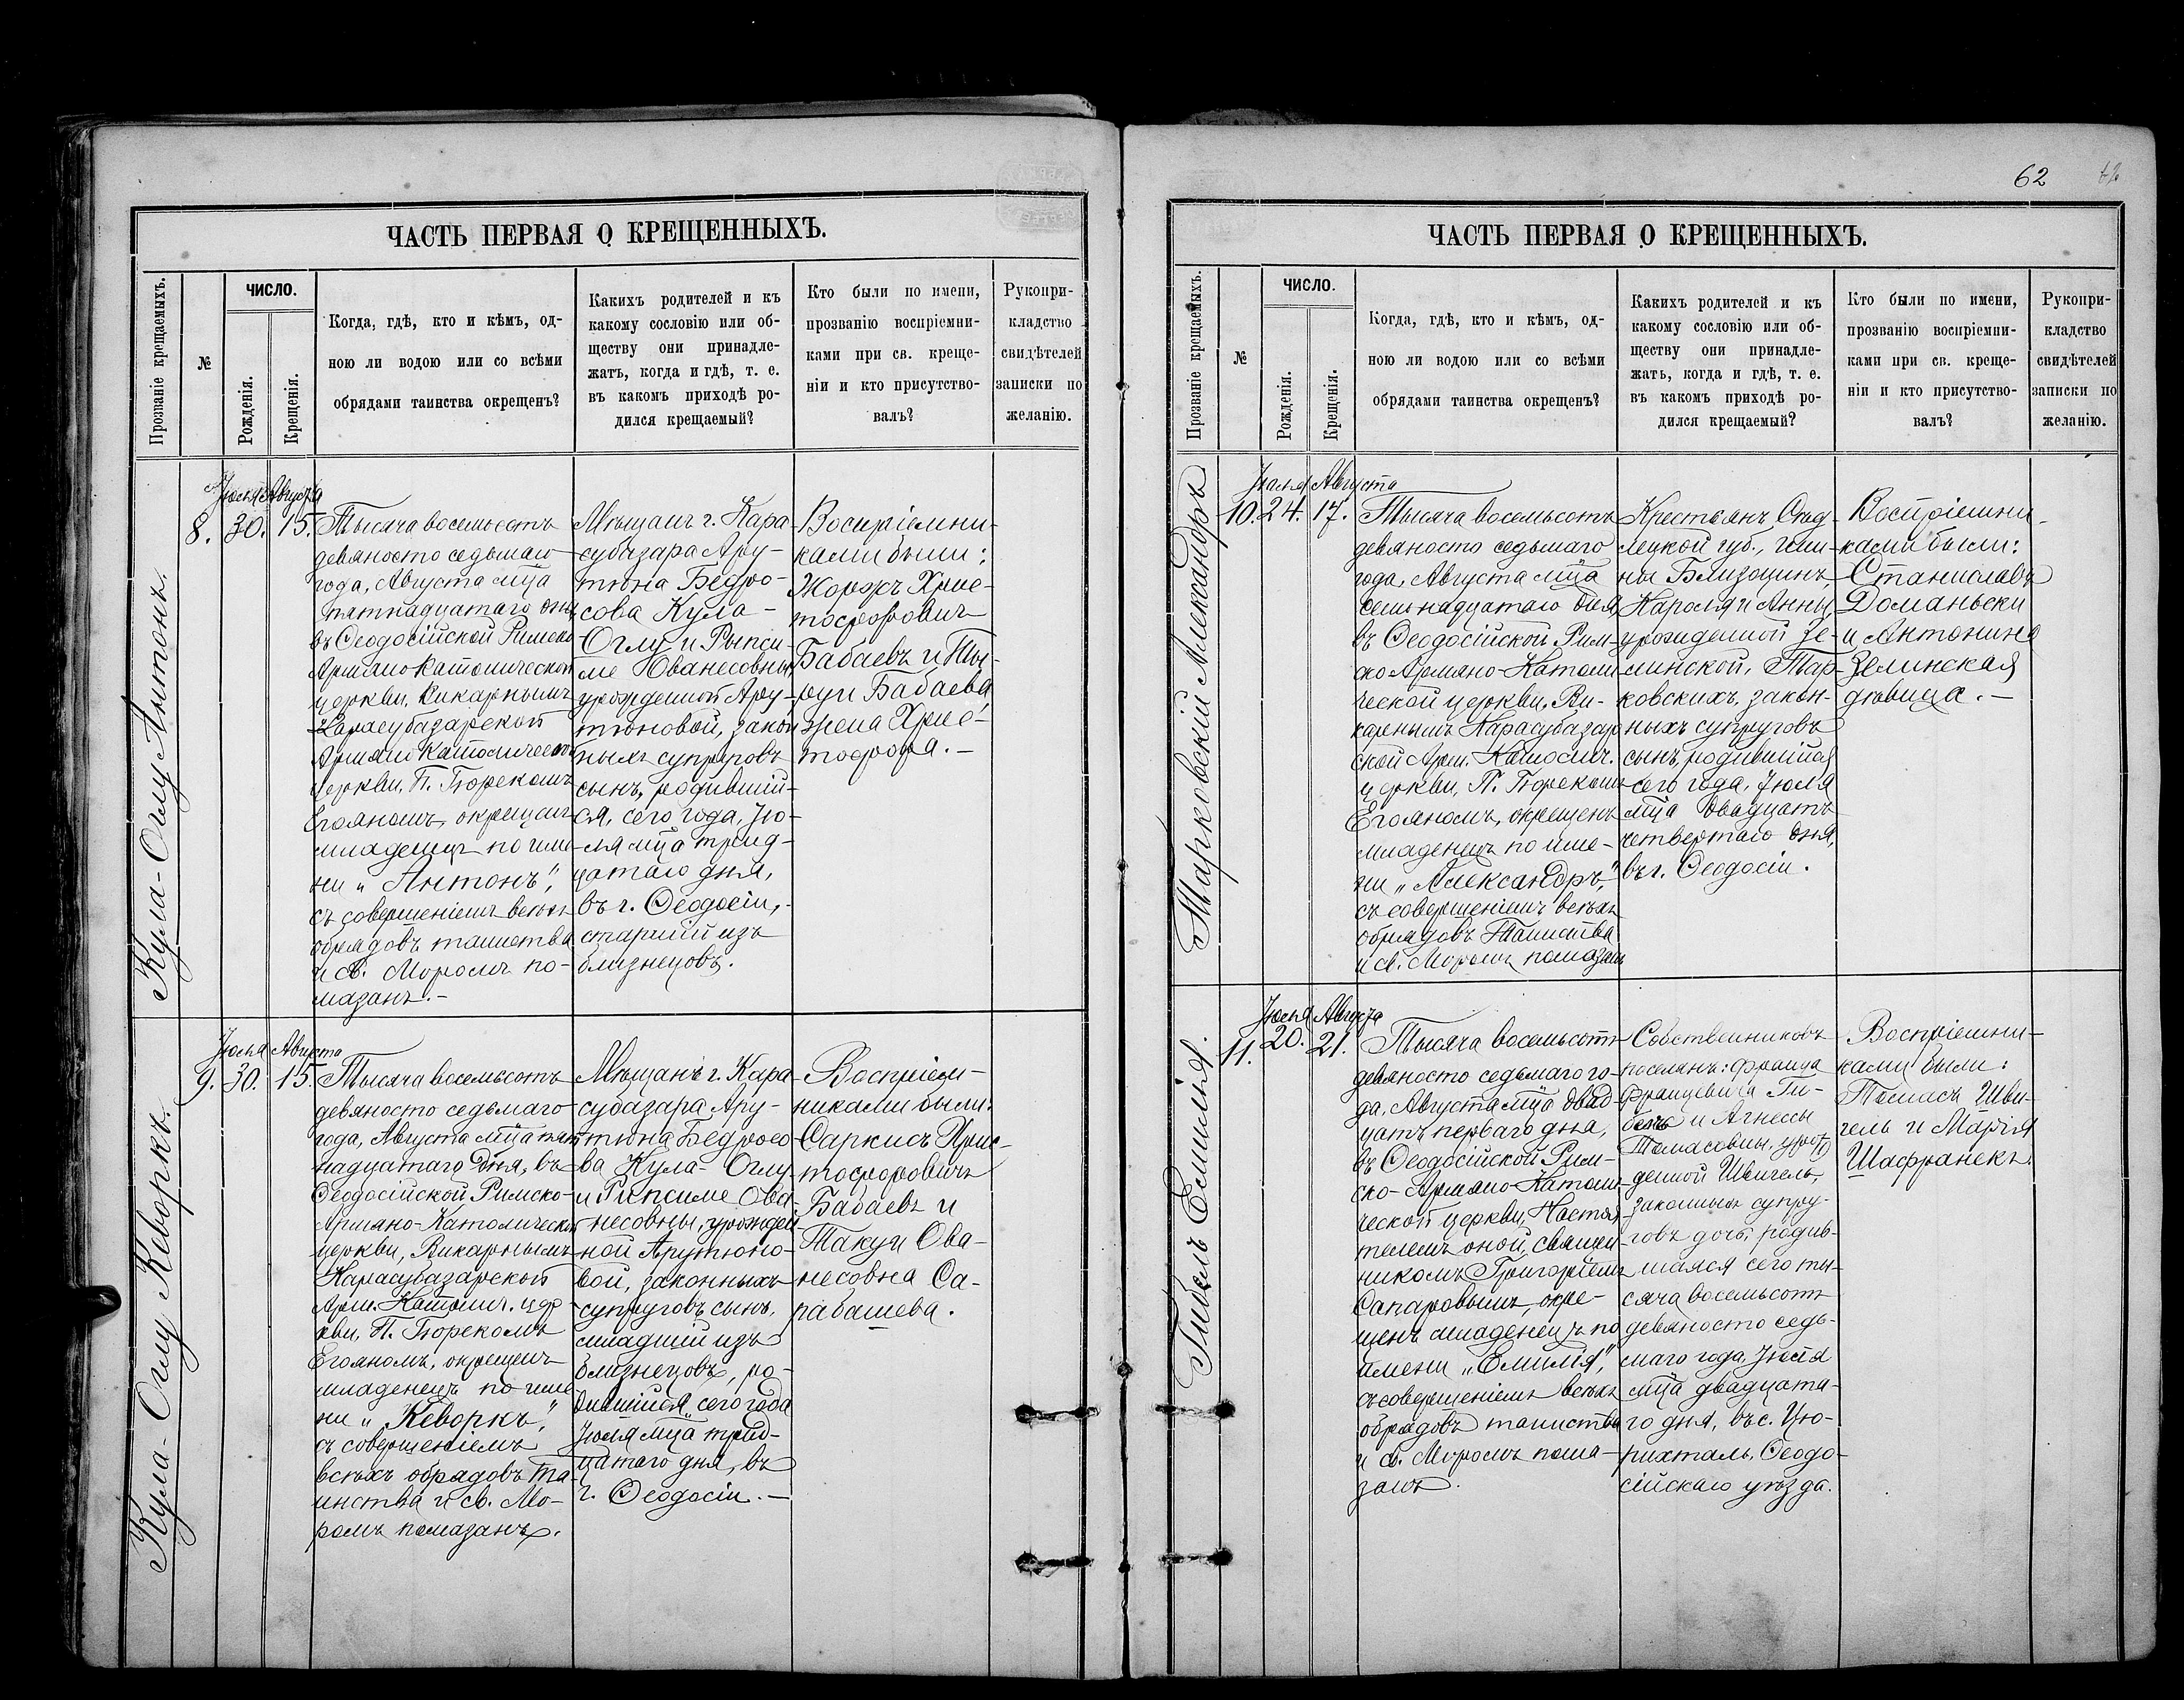 62
ЧАСТЬ ПЕРВАЯ О КРЕЩЕННЫХЪ.
Прозваніе крещаемыхъ.
№
ЧИСЛО.
Рожденія.
Крещенія.
Когда, гдѣ, кто и кѣмъ, од-
ною ли водою или со всѣми
обрядами таинства окрещенъ?
Какихъ родителей и къ
какому сословію или об-
ществу они принадле-
жатъ, когда и гдѣ, т. е.
въ какомъ приходѣ ро-
дился крещаемый?
Кто были по имени,
прозванію воспріемни-
ками при св. креще-
ніи и кто присутство-
валъ?
Рукопри-
кладство
свидѣтелей
записки по
желанію.
Кула-Оглу Антонъ.
8.
Іюля Августа
30. 15.
Тысяча восемьсотъ
девяносто седьмаго
года, Августа мца
пятнадцатаго дня,
въ Ѳеодосійской Римско
Армяно Католической
церкви, Викарнымъ
Карасубазарской
Армяно Католической
церкви, П. Бюрекомъ
Егояномъ, окрещенъ
младенецъ по име-
ни „Антонъ",
съ совершеніемъ всѣхъ
обрядовъ таинства
и св. Мѵромъ по-
мазанъ.-
Мѣщанъ г. Кара-
субазара Ару-
тюна Бедро-
сова Кула-
Оглу и Рыпси-
ме Ованесовны,
урожденной Ару-
тюновой, закон
ныхъ супруговъ
сынъ, родившій-
ся, сего года, Ію-
ля мца трид-
цатаго дня,
въ г. Ѳеодосіи,
старшій изъ
близнецовъ.
Воспріемни-
ками были:
Жоржъ Хрис-
тофоровичъ
Бабаевъ и
Бабаева
жена Хрис-
тофора.-
Кула-Оглу Кеворкъ.
9.
Іюля Августа
30. 15.
Тысяча восемьсотъ
девяносто седьмаго
года, Августа мца пят
надцатаго дня, въ
Ѳеодосійской Римско-
Армяно-Католической
церкви, Викарнымъ
Карасубазарской
Арм. Католич. цер
кви, П. Бюрекомъ
Егояномъ, окрещенъ
младенецъ по име
ни „Кеворкъ",
съ совершеніемъ
всѣхъ обрядовъ та-
инства и св. Мѵ-
ромъ помазанъ.
Мѣщанъ г. Кара-
субазара Ару-
тюна Бедросо
ва Кула-Оглу
и Рипсиме Ова-
несовны, урожден
ной Арутюно-
вой, законныхъ
супруговъ сынъ,
младшій изъ
близнецовъ, ро-
дившійся, сего года
Іюля мца трид-
цатаго дня, въ
г. Ѳеодосіи.-
Воспріем-
никами были:
Саркисъ Хрис-
тофоровичъ
Бабаевъ и
Такуи Ова-
несовна Са-
рабашева.
ЧАСТЬ ПЕРВАЯ О КРЕЩЕННЫХЪ.
Прозваніе крещаемыхъ.
№
ЧИСЛО.
Рожденія.
Крещенія.
Когда, гдѣ, кто и кѣмъ, од-
ною ли водою или со всѣми
обрядами таинства окрещенъ?
Какихъ родителей и къ
какому сословію или об-
ществу они принадле-
жатъ, когда и гдѣ, т. е.
въ какомъ приходѣ ро-
дился крещаемый?
Кто были по имени,
прозванію воспріемни-
ками при св. креще-
ніи и кто присутство-
валъ?
Рукопри-
кладство
свидѣтелей
записки по
желанію.
Тарковскій Александръ
10.
Іюля Августа
24. 17.
Тысяча восемьсотъ
девяносто седьмаго
года, Августа мца
семнадцатаго дня,
въ Ѳеодосійской Рим-
ско Армяно-Католи
ческой церкви, Ви-
карнымъ Карасубазар
ской Арм. Католич.
церкви, П. Бюрекомъ
Егояномъ, окрещенъ
младенецъ по име-
ни „Александръ",
съ совершеніемъ всѣхъ
обрядовъ Таинства
и св. Мѵромъ помазанъ
Крестьянъ Сѣд-
лецкой губ., гми-
ны Близоцинъ
Кароля и Анны
урожденной Зе-
линской, Тар-
ковскихъ, закон-
ныхъ супруговъ
сынъ, родившійся
сего года, Іюля
мца двадцать
четвертаго дня,
въ г. Ѳеодосіи.
Воспріемни-
ками были:
Станиславъ
Доманьски
и Антонина
Зелинская
дѣвица.-
Гибель Емилія.
11.
Іюля Августа
20. 21.
Тысяча восемьсотъ
девяносто седьмаго го-
да, Августа мца двад-
цать перваго дня,
въ Ѳеодосійской Рим-
ско-Армяно-Католи
ческой церкви, Настоя
телемъ оной, священ-
никомъ Григоріемъ
Сапаровымъ, окре-
щенъ младенецъ по
имени „Емилія",
съ совершеніемъ всѣхъ
обрядовъ таинства
и св. Мѵромъ пома-
занъ.
Собственниковъ
поселянъ: Франца
Францевича Ги-
бель и Агнессы
Томасовны, урож
денной Швигель,
законныхъ супру-
говъ дочь, родив-
шаяся сего ты-
сяча восемьсотъ
девяносто седь-
маго года, Іюля
мца двадцата-
го дня, въ с. Цю-
рихталь, Ѳеодо-
сійскаго уѣзда.
Воспріемни-
ками были:
Томасъ Шви-
гель и Марія
Шафранекъ.